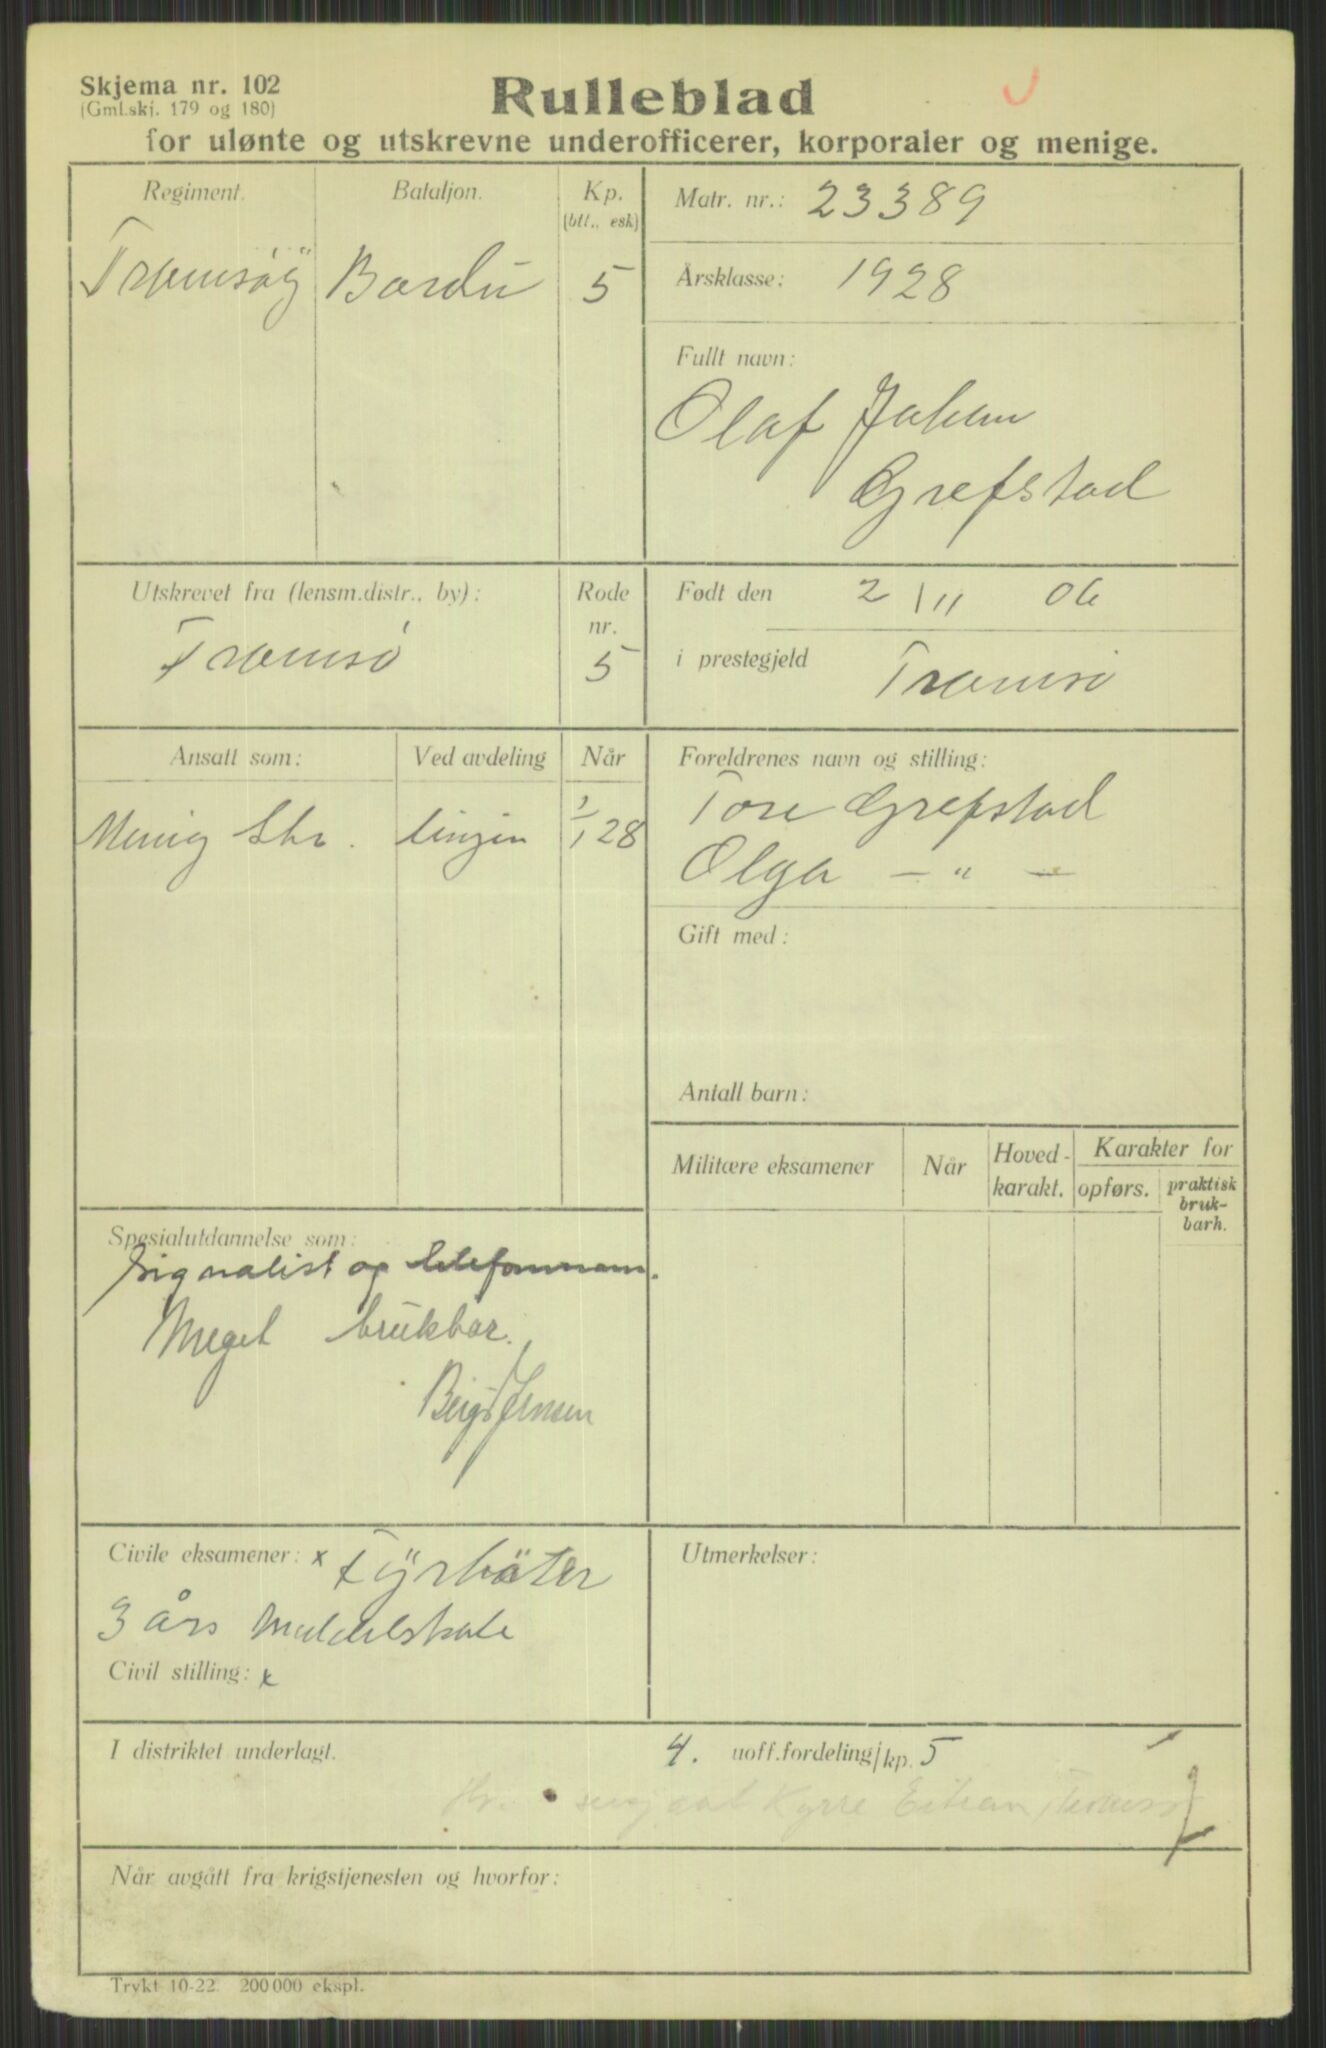 Skjema nr. 102
(Gml.skj. 179 og 180)
Rulleblad
for ulønte og utskrevne underofficerer, korporaler og menige.
Regiment. Bataljon. Kp. (btt., esk)
Bardu 5
Matr. nr.: 23389
Årsklasse: 1928
Fullt navn:
Olaf Johan
Grefstad
Utskrevet fra (lensm.distr., by): Rode nr.
Tromsö 5
Født den 2/11 06
i prestegjeld Tromsö
Ansatt som: Ved avdeling Når
Menig Str. linjen 1/1 28
Foreldrenes navn og stilling:
Tore Grefstad
Olga — „ —
Gift med:
Antall barn:
Militære eksamener Når Hoved-karakt. Karakter for
opførs. praktisk bruk-barh.
Spesialutdannelse som:
signalist og telefonmann.
Meget brukbar.
Jensen
Civile eksamener: x Fyrböter
3 års Middelskole
Civil stilling: x
Utmerkelser:
I distriktet underlagt. 4. uoff.fordeling/kp. 5
Kyrre
Når avgått fra krigstjenesten og hvorfor:
Trykt 10-22. 200000 ekspl.